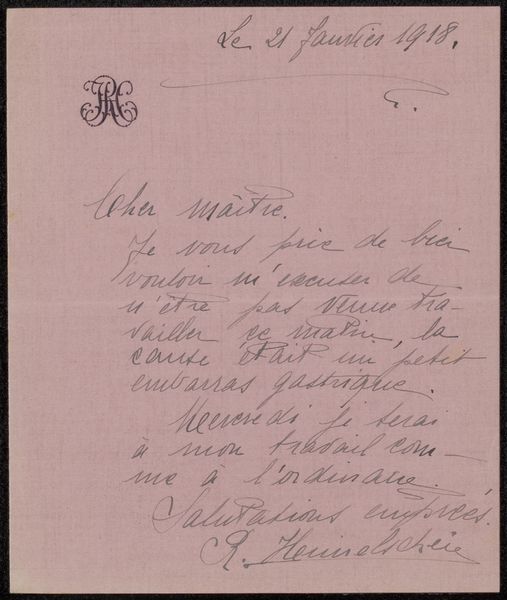 Le 21 Janvier 1918.
Cher Maître.
Je vous prie de bien
vouloir m'excuser de
n'être pas venue tra-
vailler ce matin, la
cause était un petit
embarras gastrique.
Mercredi je serai
à mon travail com-
me à l'ordinaire.
Salutations empréés.
R.